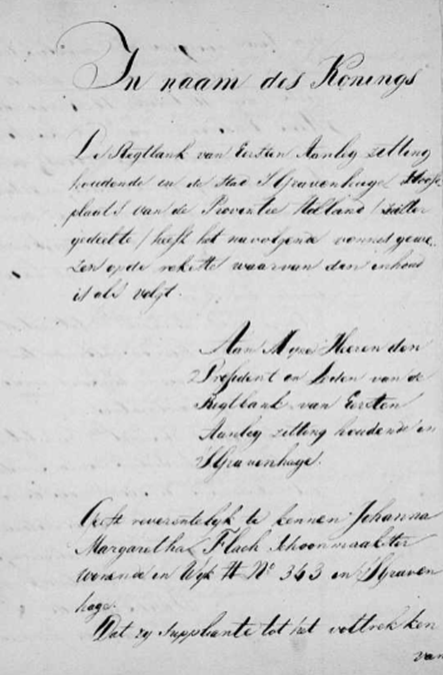 In naam des Konings
De Regtbank van Eersten Aanleg zitting
houdende in de stad 'SGravenhage Hoofd
plaats van de Proventie Holland /zuider
gedeelte/ heeft het navolgende vonnis gewe-
zen op de rekette waarvan den inhoud
is als volgt.
Aan Myne Heeren den
President en Leden van de
Regtbank van Eersten
Aanleg zitting houdende in
'SGravenhage.
Geeft reverentelyk te kennen Johanna
Margaretha Flach Schoonmaakster
wonende in Wyk H No 363 in 'SGraven
hage.
Dat zy Suppliante tot het voltrekken
van